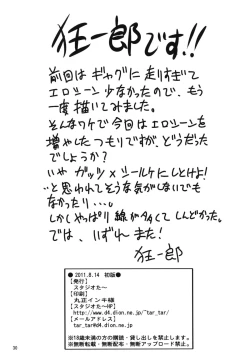 狂一郎です!!
前回はギャグに走りすぎて
エロシーン少なかったので、もう
一度描いてみました。
そんなワケで今回はエロシーンを
増やしたつもりですが、どうだった
でしょうか?
いや ガッツ×シールケにしとけよ!
と思われてそうな気がしないでも
なかったり・・・。
しかしやっぱり線が多くてしんどいわ。
では、いずれまた!
狂一郎
● 2011.8.14 初版●
【発行】
スタジオたー
【印刷】
丸正インキ様
【スタジオたーHP】
http://www.d4.dion.ne.jp/~tar_tar/
【メールアドレス】
tar_tar@d4.dion.ne.jp
※18歳未満の方の購読・貸し出しを禁止します。
※無断転載・無断配布・無断アップロード禁止。
30